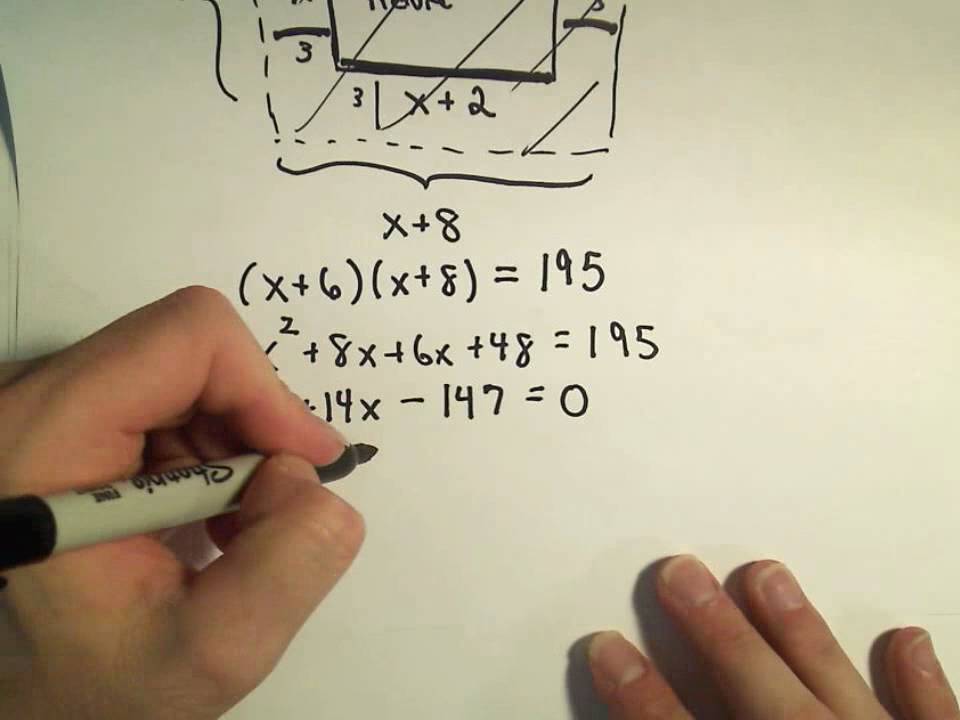 3
3 x+2
x+8
(x+6)(x+8) = 195
² + 8x + 6x + 48 = 195
+14x - 147 = 0
Sharpie